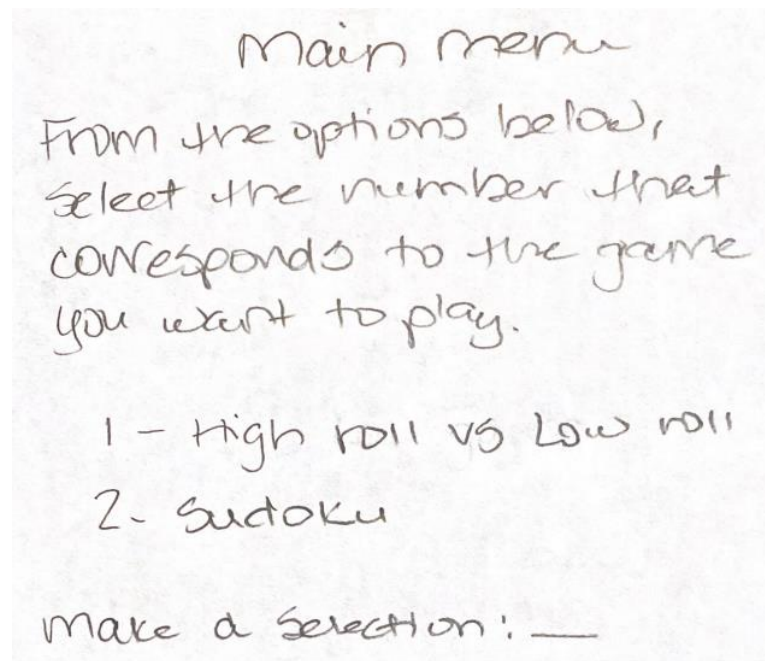 Main menu
From the options below,
select the number that
corresponds to the game
you want to play.
1 - High roll vs Low roll
2 - Sudoku
Make a selection: __